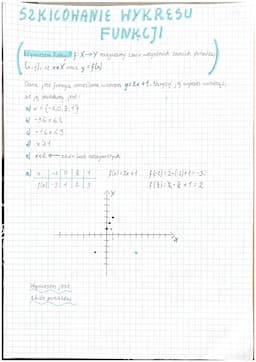 SZKICOWANIE WYKRESU
FUNKCJI
Wykresem funkcji f: X→Y nazywamy zbiór wszystkich takich punktów
(x,y), że x∈X oraz y=f(x)
Dana jest funkcja określona wzorem y=2x+1. Naszkicuj jej wykres wiedząc,
że jej dziedziną jest:
a)
b) -3≤x≤2
c)
d) x≥1
e) x∈R ← zbiór liczb rzeczywistych
a) x -2 0 1
f(x) -3 1 2 3
f(x)=2x+1
f(-2)=2·(-2)+1=-3
Y
X
Wykresem jest
zbiór punktów